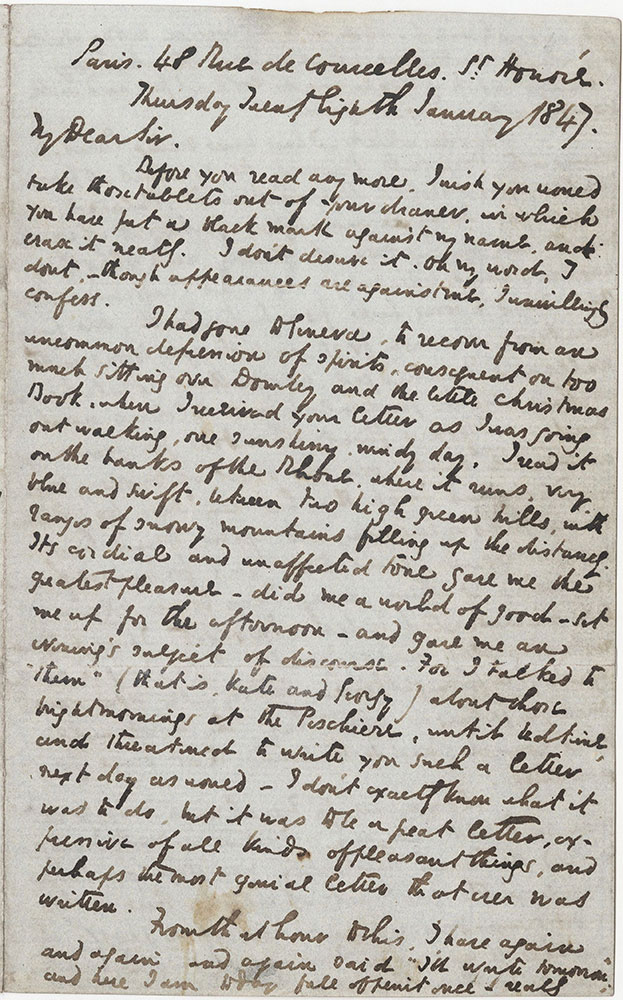 Paris. 48 Rue de Courcelles. St. Honoré.
Thursday Twenty Eighth January 1847.
My Dear Sir.
Before you read any more, I wish you would
take those tablets out of your drawer, in which
you have put a black mark against my name, and
erase it neatly. I don't deserve it. On my word, I
don't, - though appearances are against me, I unwillingly
confess.
I had gone to Geneva, to recover from an
uncommon depression of spirits, consequent on too
much sitting over Dombey and the little Christmas
Book, when I received your letter as I was going
out walking, one sunshiny, windy day. I read it
on the banks of the Rhone, where it runs, very
blue and swift, between two high green hills, with
ranges of snowy mountains filling up the distance.
Its cordial and unaffected tone gave me the
greatest pleasure - did me a world of good - set
me up for the afternoon - and gave me an
evening's subject of discourse. For I talked to
"them" (that is, Kate and Georgy) about those
bright mornings at the Peschiere, until bedtime,
and threatened to write you such a letter
next day as would - I don't exactly know what it
was to do, but it was to be a great letter, ex-
pressive of all kinds of pleasant things, and
perhaps the most genial letter that ever was
written.
From that hour to this, I have again
and again and again said "I'll write tomorrow"
and here I am today full of penitence - really